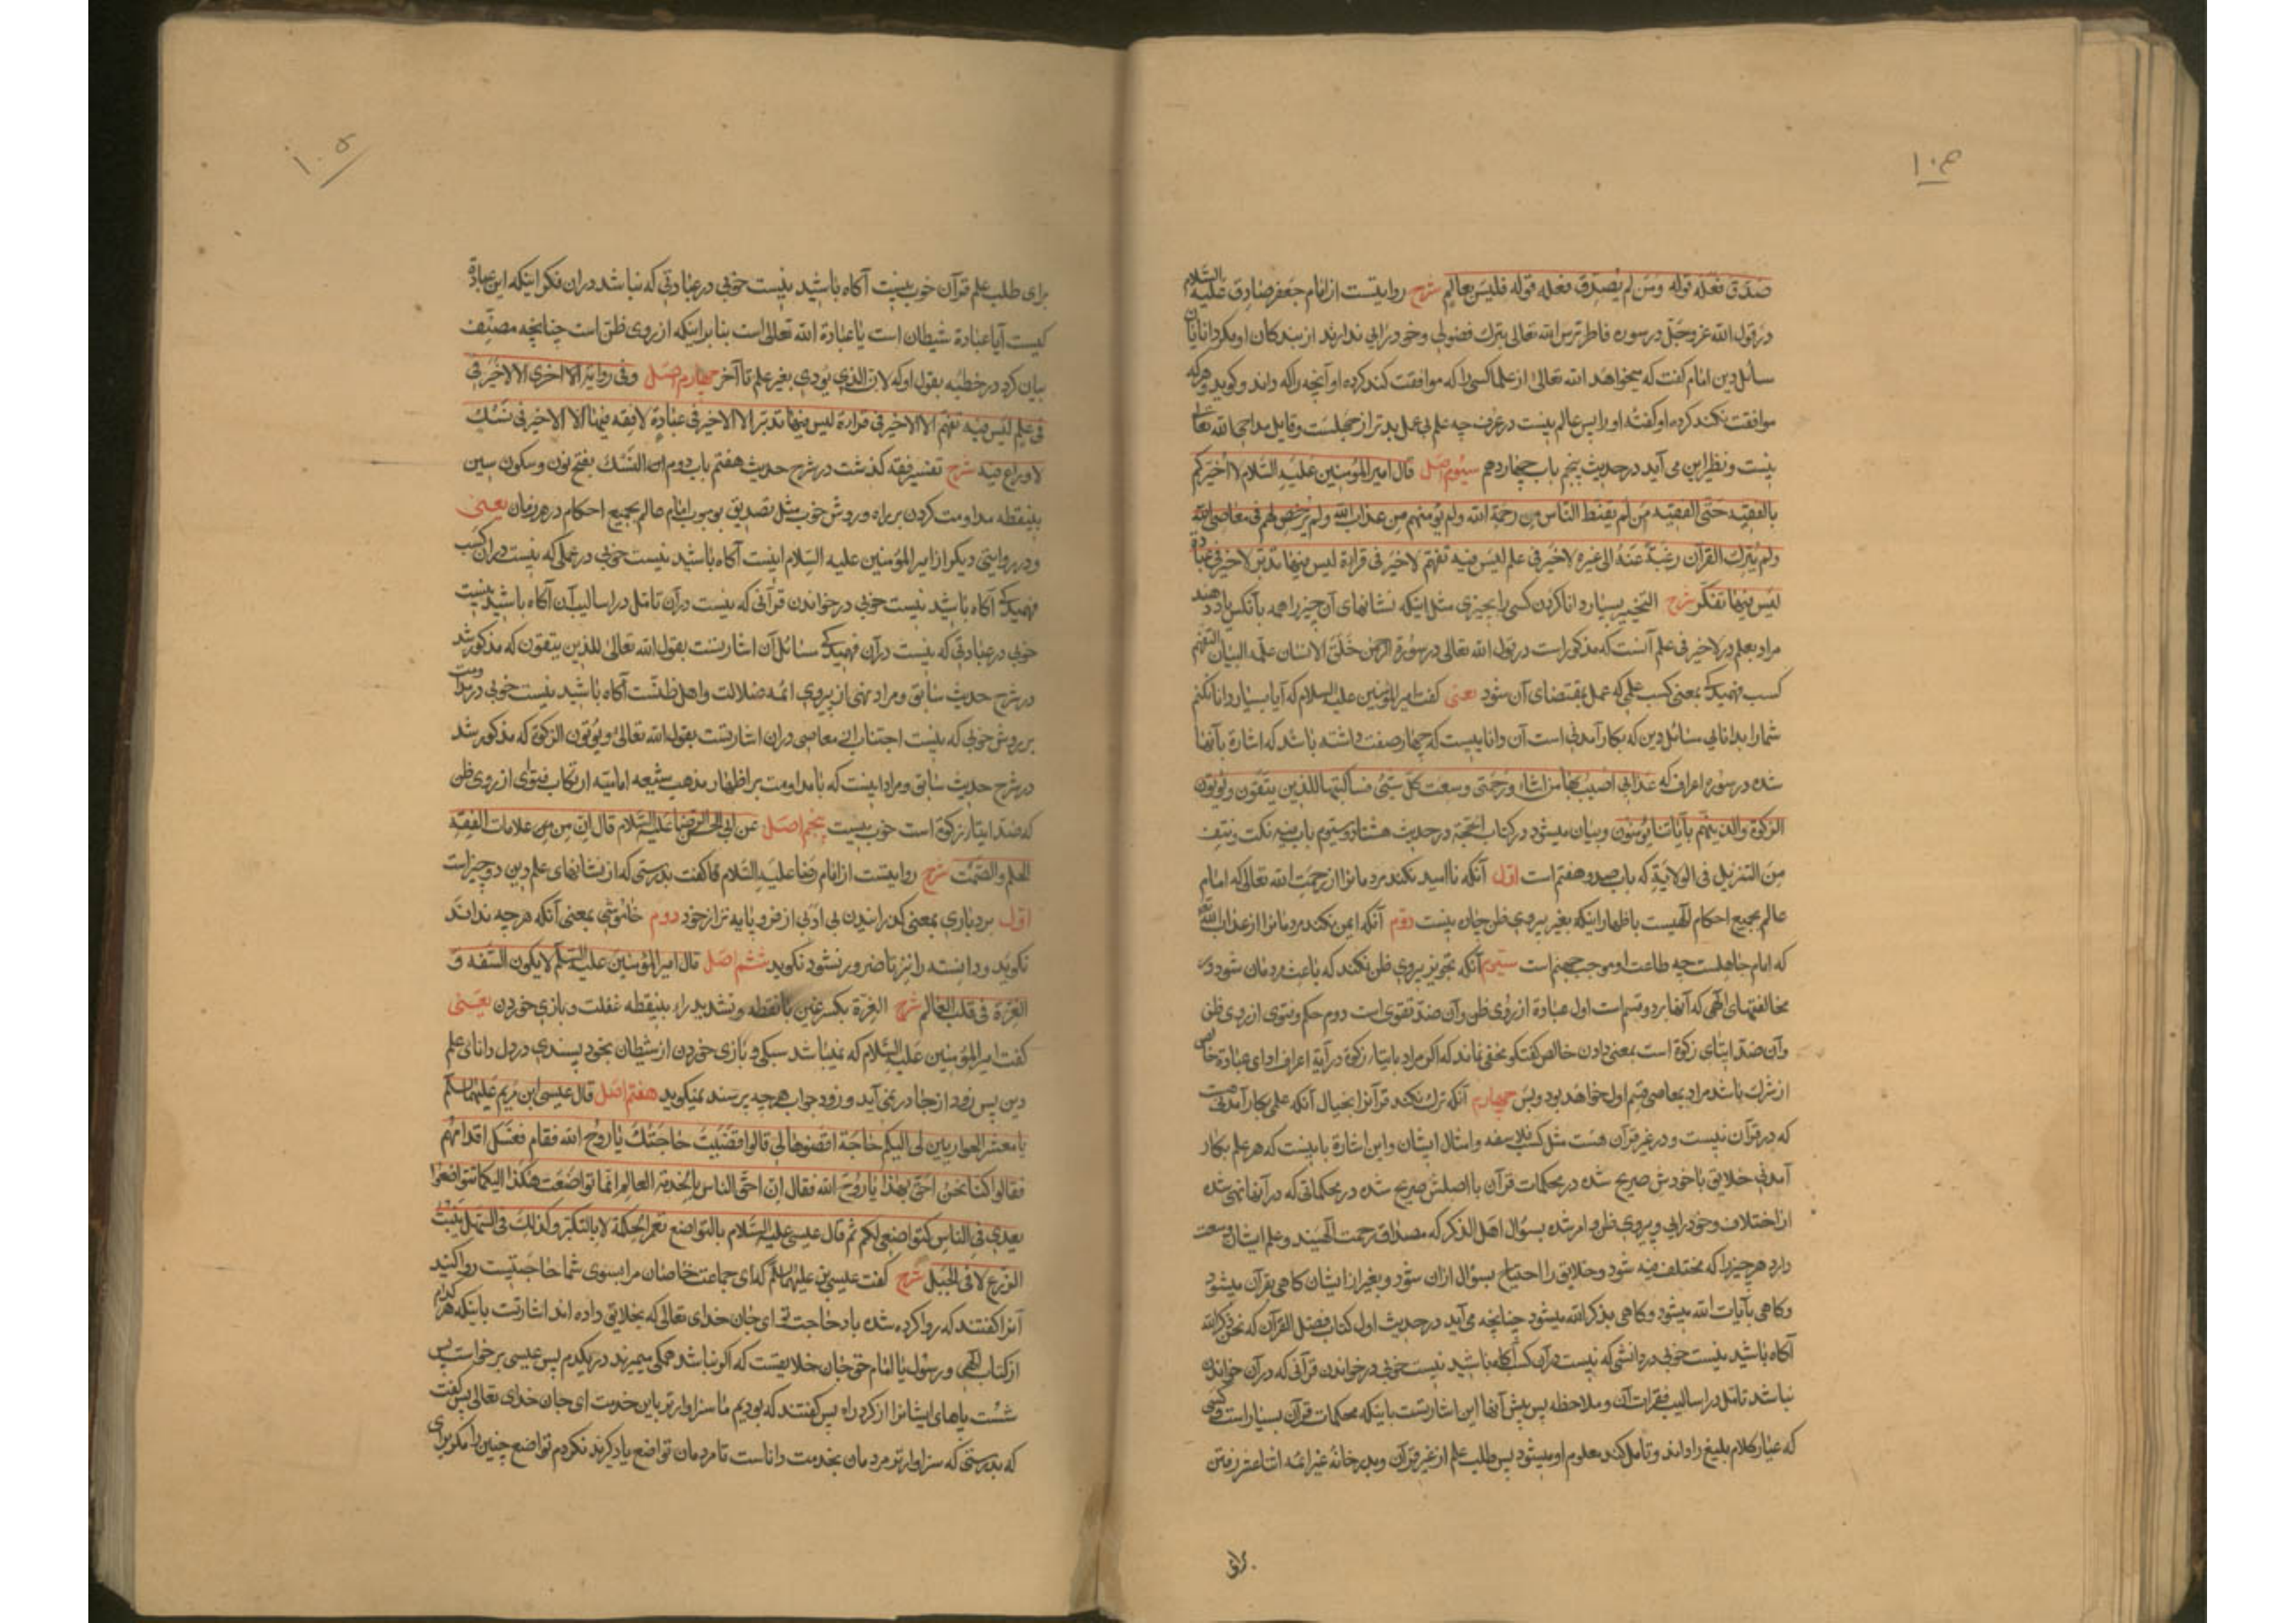 ۱۰۴
صَدَّقَ فعلُه قولَه ومَن لم یُصدِّق فعلُه قولَه فلیس بعالم شرح روایتست از امام جعفر صادق علیه السّلام
در قول الله عزوجل در سوره فاطر ترس الله تعالی بترک فضولی و خودرایی ندارند از بندگان او مگر دانایان
سائل دین امام گفت که میخواهد الله تعالی از علما کسی را که موافقت کند کرده او آنچه را که داند و گوید و هرکه
موافقت نکند کرده او گفته او را پس عالم نیست در عرف چه علم بی عمل بدتر از جهلست و قابل مداحی الله تعالی
نیست و نظیر این می آید در حدیث پنجم باب چهاردهم سیوم اصل قال امیر المؤمنین علیه السّلام الا اخبرکم
بالفقیه حَقَّ الفقیه مَن لم یقنّط النّاس من رحمة الله ولم یؤمنهم من عذاب الله ولم یرخّص لهم فی معاصی الله
ولم یترک القرآن رغبةً عنه الی غیره لاخیر فی علم لیس فیه تفهّم لاخیر فی قراءة لیس فیها تدبّر لاخیر فی عبادة
لیس فیها تفکّر شرح التخبیر بسیار دانا کردن کسی را بچیزی مثل اینکه نشانهای آن چیز را همه بآنکس یاد دهند
مراد بعلم در لاخیر فی علم آنست که مذکور است در قول الله تعالی در سورة الرحمن خَلَقَ الانسان علّمه البیان التفهّم
کسب فهمیدگی بمعنی کسب علمی که عمل بمقتضای آن شود یعنی گفت امیر المؤمنین علیه السلام که آیا بسیار دانا نکنم
شما را بدانایی مسائل دین که بکار آمدنی است آن داناییست که چهار صفت داشته باشد که اشارة بآنها
شده در سوره اعراف که عذابی اصیب بها من اشاء ورحمتی وسعت کلّ شیئ فساکتبها للذین یتّقون ویؤتون
الزکوة والذین هم بآیاتنا یؤمنون و بیان میشود در کتاب الحجّة در حدیث هشتاد و سیوم باب فیه نکت ونتف
مِنَ التنزیل فی الولایة که باب صد و هفتم است اوّل آنکه نا امید نکند مردمان را از رحمت الله تعالی که امام
عالم بجمیع احکام الهیست باظهار اینکه بغیر پیروی ظن چاره نیست دوّم آنکه ایمن نکند مردمان را از عذاب الله تعالی
که امام جاهلست چه طاعت او موجب جهنم است سیوم آنکه تجویز پیروی ظن نکند که باعث مردمان شود در
مخالفتهای الهی که آنها بر دو قسم است اول عبادة از روی ظن و آن ضدّ تقوی است دوم حکم و فتوی از روی ظن
و آن ضدّ ایتای زکوة است بمعنی دادن خالص گفتگو مخفی نماند که اگر مراد بایتاء زکوة در آیة اعراف ادای عبادة خالص
از شرک باشد مراد بمعاصی قسم اول خواهد بود و بس چهارم آنکه ترک نکند قرآن را بخیال آنکه علمی بکار آمدنی هست
که در قرآن نیست و در غیر قرآن هست مثل کتب فلاسفه و امثال ایشان و این اشارة باینست که هر علم بکار
آمدنی خلایق یا خودش صریح شده در محکمات قرآن یا اصلش صریح شده در محکماتی که در آنها نهی شده
از اختلاف و خودرایی و پیروی ظن و امر شده بسؤال اهل الذکر که مصداق رحمت الهیند و علم ایشان وسعت
دارد هر چیز را که مختلف فیه شود و خلایق را احتیاج بسؤال ازان شود و بغیر از ایشان گاهی بقرآن میشود
و گاهی بآیات الله میشود و گاهی بذکر الله میشود چنانچه می آید در حدیث اول کتاب فضل القرآن که نحن ذکر الله
آگاه باشید نیست خوبی در دانشی که نیست در آن کسب آگاه باشید نیست خوبی در خواندن قرآنی که در آن خواندن
نباشد تامل در اسالیب فقرات آن و ملاحظه پس و پیش آنها این اشارتست باینکه محکمات قرآن بسیار است و کسی
که عیار کلام بلیغ را داند و تامل کند معلوم او میشود پس طلب علم از غیر قرآن و بدر خانه غیر ائمه اثنا عشر رفتن
برای
۱۰۵
برای طلب علم قرآن خوب نیست آگاه باشید نیست خوبی در عبادتی که نباشد دران فکر اینکه این عبادة
کیست آیا عبادة شیطان است یا عبادة الله تعالی است بنا بر اینکه از روی ظن است چنانچه مصنّف
بیان کرد در خطبه بقول او که لانّ الذی یؤدی بغیر علم تا آخر چهارم اصل وفی روایة الاخری الا لاخیر فی
فی علم لیس فیه تفهّم الا لاخیر فی قراءة لیس فیها تدبّر الا لاخیر فی عبادة لا فقه فیها الا لاخیر فی نسک
لا ورع فیه شرح تفسیر فقه گذشت در شرح حدیث هفتم باب دوم ان النّسک بفتح نون و سکون سین
بینقطه مداومت کردن بر راه و روش خوب مثل تصدیق بوجوب امام عالم بجمیع احکام در هر زمان یعنی
و در روایتی دیگر از امیر المؤمنین علیه السّلام اینست آگاه باشید نیست خوبی در عملی که نیست در آن کسب
فهمیدگی آگاه باشید نیست خوبی در خواندن قرآنی که نیست در آن تامل در اسالیب آن آگاه باشید نیست
خوبی در عبادتی که نیست در آن فهمیدگی مسائل آن اشارتست بقول الله تعالی للذین یتقون که مذکور شد
در شرح حدیث سابق و مراد نهی از پیروی ائمه ضلالت و اهل ظنّست آگاه باشید نیست خوبی در مداومت
بر روش خوبی که نیست اجتناب از معاصی دران اشارتست بقول الله تعالی ویؤتون الزکوة که مذکور شد
در شرح حدیث سابق و مراد اینست که با مداومت بر اظهار مذهب شیعه امامیّه ارتکاب فتوای از روی ظن
که ضدّ ایتاء زکوة است خوب نیست پنجم اصل عن ابی الحسن الرّضا علیه السّلام قال انّ مِن علامات الفقه
الحلم والصّمت شرح روایتست از امام رضا علیه السّلام که گفت بدرستی که از نشانهای علم دین دو چیز است
اوّل بردباری بمعنی گذرانیدن بی ادبی از فرو پایه تر از خود دوم خاموشی بمعنی آنکه هر چه نداند
نگوید و دانسته را نیز تا ضرور نشود نگوید ششم اصل قال امیر المؤمنین علیه السّلم لایکون السّفه و
الغرّة فی قلب العالم شرح الغرّة بکسر غین با نقطه و تشدید راء بینقطه غفلت و بازی خوردن یعنی
گفت امیر المؤمنین علیه السّلام که نمیباشد سبکی و بازی خوردن از شیطان بخود پسندی در دل دانای علم
دین پس زود از جا در نمی آید و زود جواب هر چه پرسند نمیگوید هفتم اصل قال عیسی ابن مریم علیهما السلم
یا معشر الحواریین لی الیکم حاجة اقضوها لی قالوا قضیت حاجتک یا روح الله فقام فغسل اقدامهم
فقالوا کنّا نحن احقّ بهذا یا روح الله فقال انّ احقّ الناس بالخدمة العالم انّما تواضعت هکذا لکیما تتواضعوا
بعدی فی الناس کتواضعی لکم ثم قال عیسی علیه السّلام بالتواضع تعمر الحکمة لا بالتکبّر وکذلک فی السّهل ینبت
الزرع لا فی الجبل شرح گفت عیسی بن علیهما السلم که ای جماعت خاصان مرا بسوی شما حاجتیست روا کنید
آنرا گفتند که روا کرده شده باد حاجت تو ای جان خدای تعالی که بخلایق داده اند اشارتست باینکه هر کدام
از کتاب الهی و رسول یا امام حق جان خلایقست که اگر نباشد همگی میمیرند در یکدم پس عیسی برخواست پس
شست پاهای ایشان را از گرد راه پس گفتند که بودیم ما سزاوارتر باین خدمت ای جان خدای تعالی پس گفت
که بدرستی که سزاوارتر مردمان بخدمت داناست تا مردمان تواضع یاد گیرند نکردم تواضع چنین را مگر برای